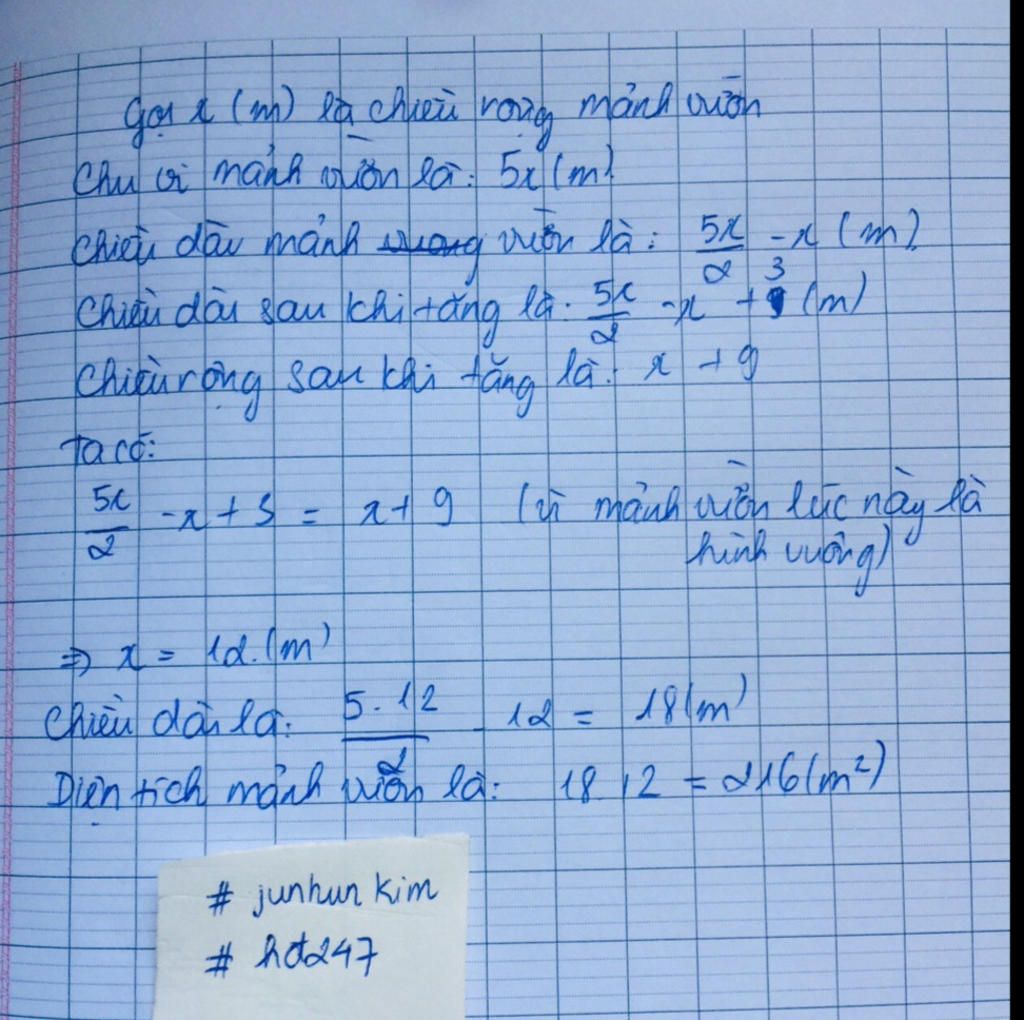 Gọi x (m) là chiều rộng mảnh vườn
Chu vi mảnh vườn là: 5x (m)
Chiều dài mảnh vuông vườn là: 5x/2 - x (m)
Chiều dài sau khi tăng là: 5x/2 - x + 3 (m)
Chiều rộng sau khi tăng là: x + 9
Ta có:
5x/2 - x + 3 = x + 9 (vì mảnh vườn lúc này là
hình vuông)
⇒ x = 12 (m)
Chiều dài là: 5.12/2 - 12 = 18 (m)
Diện tích mảnh vườn là: 18.12 = 216 (m²)
# junhun kim
# hd247